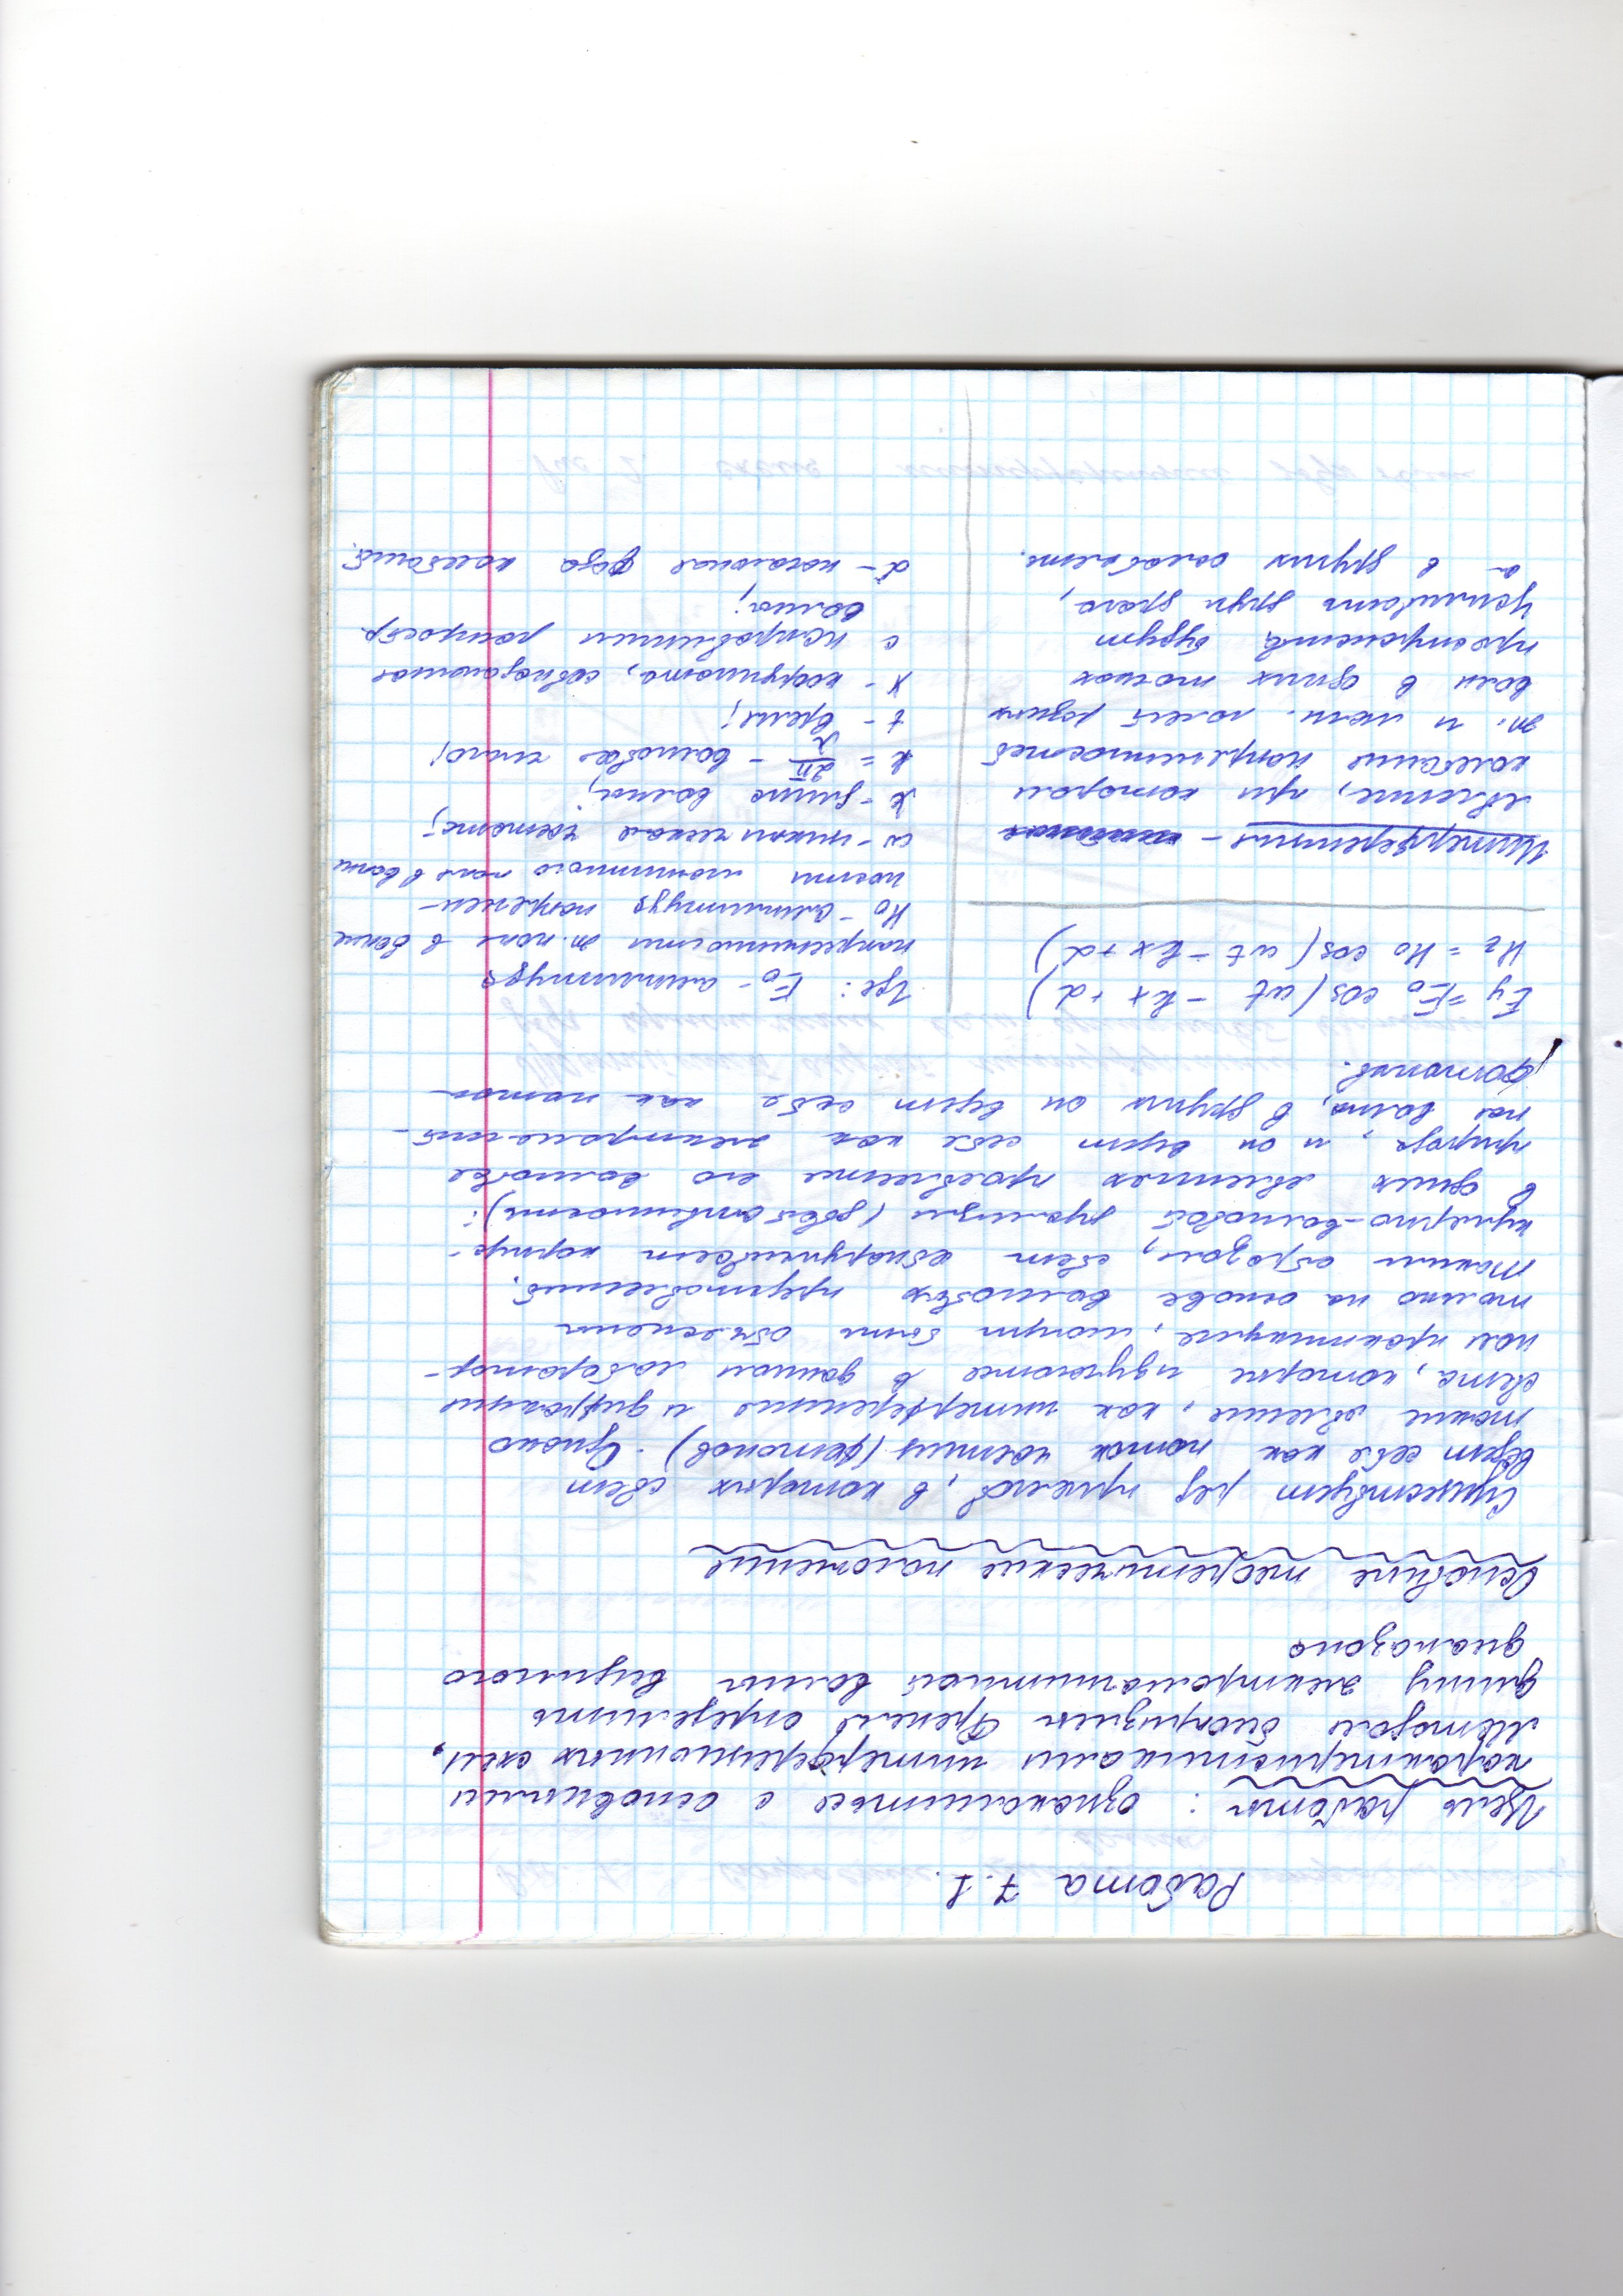 Работа 7.1.
Цель работы: ознакомиться с основными
характеристиками интерференционных схем,
Методом бипризмы Френеля определить
длину электромагнитной волны видимого
диапазона
Основные теоретические положения
Существует ряд приемов, в которых свет
ведет себя как поток частиц (фотонов). Однако
такие явление, как интерференция и дифракция
света, которые изучаются в данном лаборатор-
ном практикуме, могут быть объяснены
только на основе волновых представлений.
Таким образом, свет обнаруживает корпус-
кулярно-волновой дуализм (двойственность):
в одних явлениях проявляется его волновая
природа, и он ведет себя как электромагнит-
ная волна, в других он ведет себя как поток
фотонов.
Ey = E₀ cos(ωt - kx + α)
Hz = H₀ cos(ωt - kx + α)
Интерференция -
явление, при котором
колебание напряженностей
эл. и магн. полей разных
волн в одних точках
пространства будут
усиливать друг друга,
а в других ослаблять.
Где: E₀ - амплитуда
напряженности эл. поля в волне
H₀ - амплитуда напряжен-
ности магнитного поля в волне
ω - циклическая частота;
λ - длина волны;
k = 2π/λ - волновое число;
t - время;
x - координата, совпадающая
с направлением распростр.
волны;
α - начальная фаза колебаний.